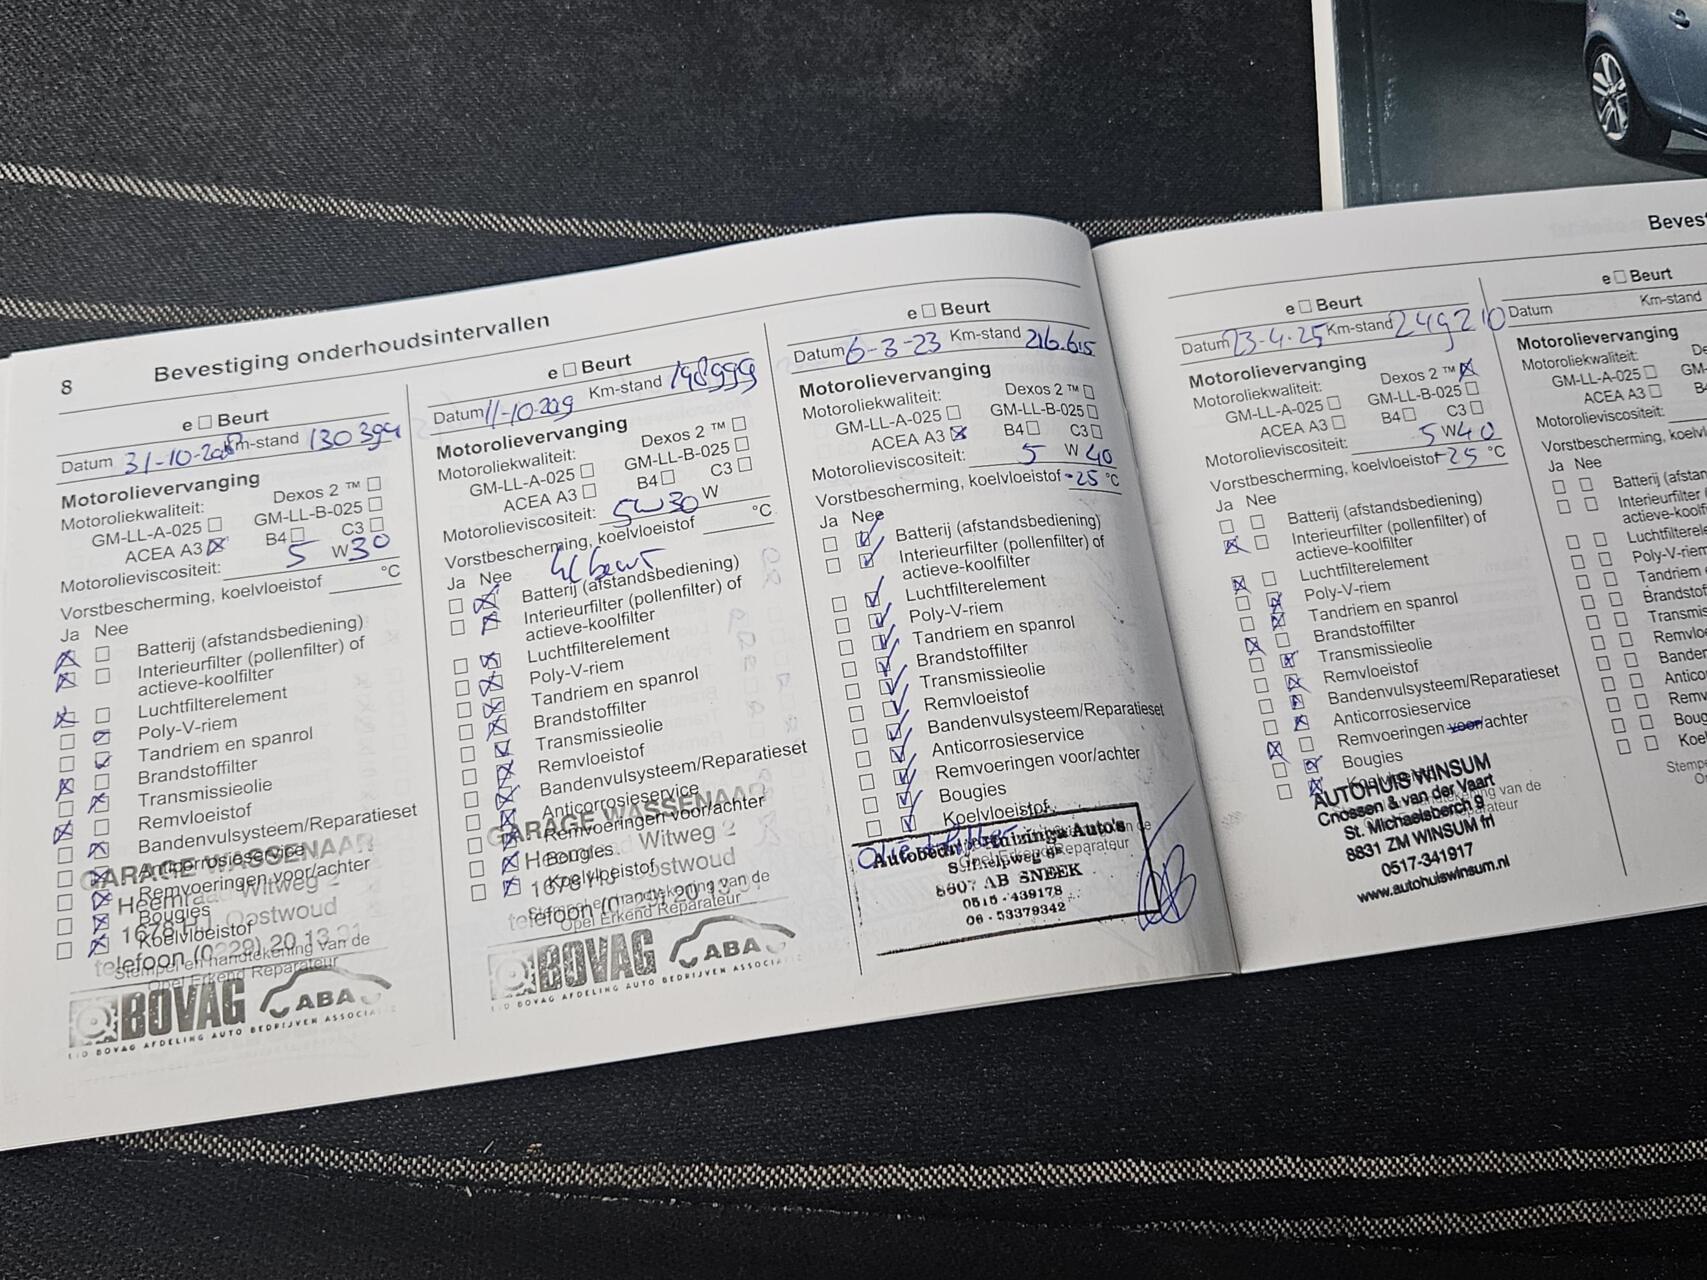 8 Bevestiging onderhoudsintervallen
e □ Beurt
Datum 31-10-20 Km-stand 130394
Motorolievervanging
Motoroliekwaliteit: Dexos 2 ™ □
GM-LL-A-025 □ GM-LL-B-025 □
ACEA A3 ☒ B4 □ C3 □
Motorolieviscositeit: 5 W 30
Vorstbescherming, koelvloeistof °C
Ja Nee
☒ □ Batterij (afstandsbediening)
☒ □ Interieurfilter (pollenfilter) of
actieve-koolfilter
☒ □ Luchtfilterelement
□ ☒ Poly-V-riem
□ ☒ Tandriem en spanrol
☒ □ Brandstoffilter
□ ☒ Transmissieolie
☒ □ Remvloeistof
□ ☒ Bandenvulsysteem/Reparatieset
□ ☒ Anticorrosieservice
□ ☒ Remvoeringen voor/achter
□ ☒ Bougies
□ ☒ Koelvloeistof
Stempel en handtekening van de
Opel Erkend Reparateur
GARAGE WASSENAAR
Witweg 2
1678 HJ Oostwoud
telefoon (0229) 20 13 91
BOVAG ABA
BOVAG AFDELING AUTO BEDRIJVEN ASSOCIATIE
e □ Beurt
Datum 11-10-2019 Km-stand 198999
Motorolievervanging
Motoroliekwaliteit: Dexos 2 ™ □
GM-LL-A-025 □ GM-LL-B-025 □
ACEA A3 □ B4 □ C3 □
Motorolieviscositeit: 5W30 W
Vorstbescherming, koelvloeistof °C
Ja Nee beurt
□ ☒ Batterij (afstandsbediening)
□ ☒ Interieurfilter (pollenfilter) of
actieve-koolfilter
□ ☒ Luchtfilterelement
□ ☒ Poly-V-riem
□ ☒ Tandriem en spanrol
□ ☒ Brandstoffilter
□ ☒ Transmissieolie
□ ☒ Remvloeistof
□ ☒ Bandenvulsysteem/Reparatieset
□ ☒ Anticorrosieservice
□ ☒ Remvoeringen voor/achter
□ ☒ Bougies
□ ☒ Koelvloeistof
Stempel en handtekening van de
Opel Erkend Reparateur
GARAGE WASSENAAR
Witweg 2
1678 HJ Oostwoud
telefoon (0229) 20 13 91
BOVAG ABA
BOVAG AFDELING AUTO BEDRIJVEN ASSOCIATIE
e □ Beurt
Datum 6-3-23 Km-stand 216.615
Motorolievervanging
Motoroliekwaliteit: Dexos 2 ™ □
GM-LL-A-025 □ GM-LL-B-025 □
ACEA A3 ☒ B4 □ C3 □
Motorolieviscositeit: 5 W 40
Vorstbescherming, koelvloeistof -25 °C
Ja Nee
□ ☑ Batterij (afstandsbediening)
□ ☑ Interieurfilter (pollenfilter) of
actieve-koolfilter
□ ☑ Luchtfilterelement
□ ☑ Poly-V-riem
□ ☑ Tandriem en spanrol
□ ☑ Brandstoffilter
□ ☑ Transmissieolie
□ ☑ Remvloeistof
□ ☑ Bandenvulsysteem/Reparatieset
□ ☑ Anticorrosieservice
□ ☑ Remvoeringen voor/achter
□ ☑ Bougies
□ ☑ Koelvloeistof
Opel Erkend Reparateur
Autobedrijf Thizinga Auto's
8607 AB SNEEK
0515 - 439178
06 - 53379342
Bevest
e □ Beurt
Datum 23-4-25 Km-stand 249210
Motorolievervanging
Motoroliekwaliteit: Dexos 2 ™ ☒
GM-LL-A-025 □ GM-LL-B-025 □
ACEA A3 □ B4 □ C3 □
Motorolieviscositeit: 5 W 40
Vorstbescherming, koelvloeistof -25 °C
Ja Nee
□ □ Batterij (afstandsbediening)
☒ □ Interieurfilter (pollenfilter) of
actieve-koolfilter
☒ □ Luchtfilterelement
□ ☒ Poly-V-riem
□ ☒ Tandriem en spanrol
☒ □ Brandstoffilter
□ ☒ Transmissieolie
□ ☒ Remvloeistof
□ ☒ Bandenvulsysteem/Reparatieset
□ ☒ Anticorrosieservice
☒ □ Remvoeringen voor/achter
□ ☒ Bougies
□ ☒ Koelvloeistof
AUTOHUIS WINSUM
Cnossen & van der Vaart
St. Michaelsberch 9
8831 ZM WINSUM frl
0517-341917
www.autohuiswinsum.nl
e □ Beurt
Datum Km-stand
Motorolievervanging
Motoroliekwaliteit: De
GM-LL-A-025 □ GM-
ACEA A3 □ B4
Motorolieviscositeit:
Vorstbescherming, koelvlo
Ja Nee
□ □ Batterij (afstand
□ □ Interieurfilter (
actieve-koolf
□ □ Luchtfiltere
□ □ Poly-V-rie
□ □ Tandriem
□ □ Brandsto
□ □ Transmis
□ □ Remvlo
□ □ Banden
□ □ Antico
□ □ Remv
□ □ Boug
□ □ Koel
Stempe